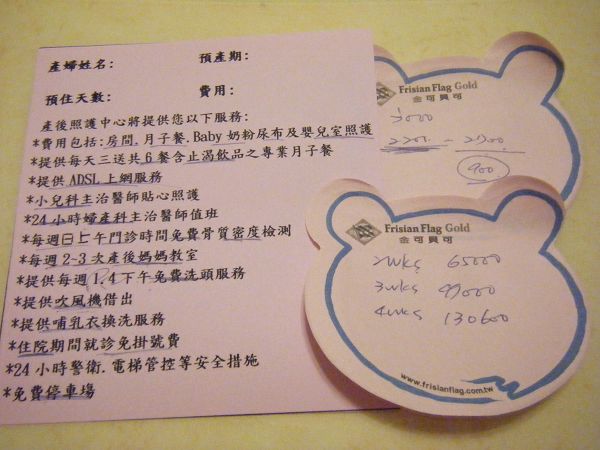 產婦姓名: 預產期:
預住天數: 費用:
產後照護中心將提供您以下服務:
*費用包括:房間.月子餐.Baby 奶粉尿布及嬰兒室照護
*提供每天三送共6餐含止渴飲品之專業月子餐
*提供 ADSL 上網服務
*小兒科主治醫師貼心照護
*24 小時婦產科主治醫師值班
*每週日上午門診時間免費骨質密度檢測
*每週 2~3 次產後媽媽教室
*提供每週 1.4 下午免費洗頭服務
*提供吹風機借出
*提供哺乳衣換洗服務
*住院期間就診免掛號費
*24 小時警衛.電梯管控等安全措施
*免費停車場
Frisian Flag Gold
金可貝可
900
Frisian Flag Gold
金可貝可
2wks 65000
3wks 99000
4wks 130600
www.frisianflag.com.tw